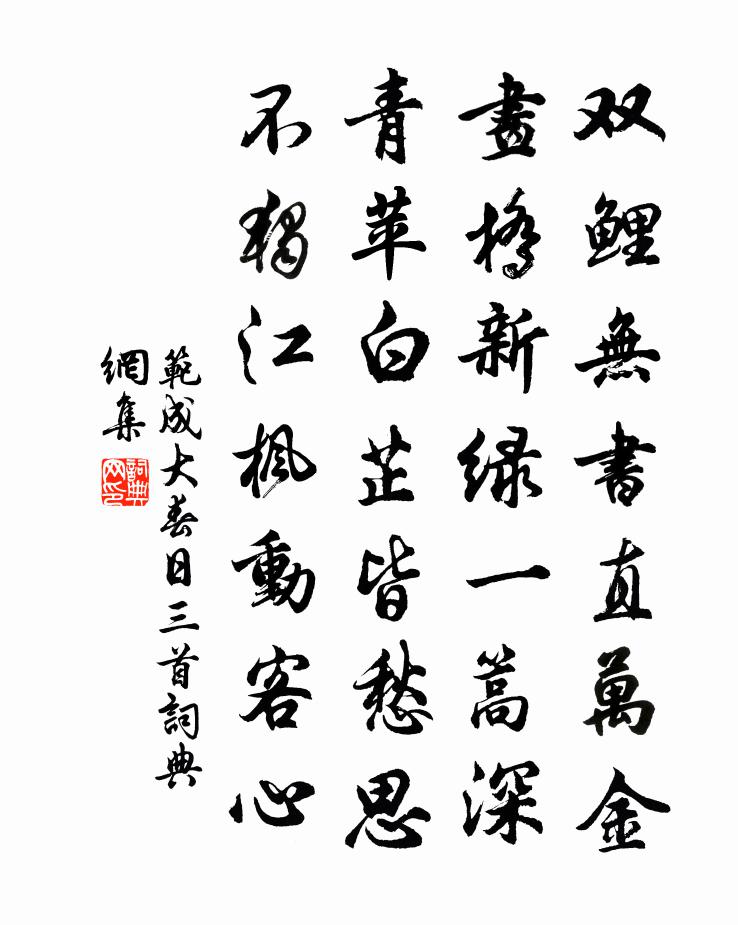 双鲤無書直萬金
畫橋新緑一篙深
青苹白芷皆愁思
不獨江楓動客心
範成大春日三首詞典
網集
詞典
网印